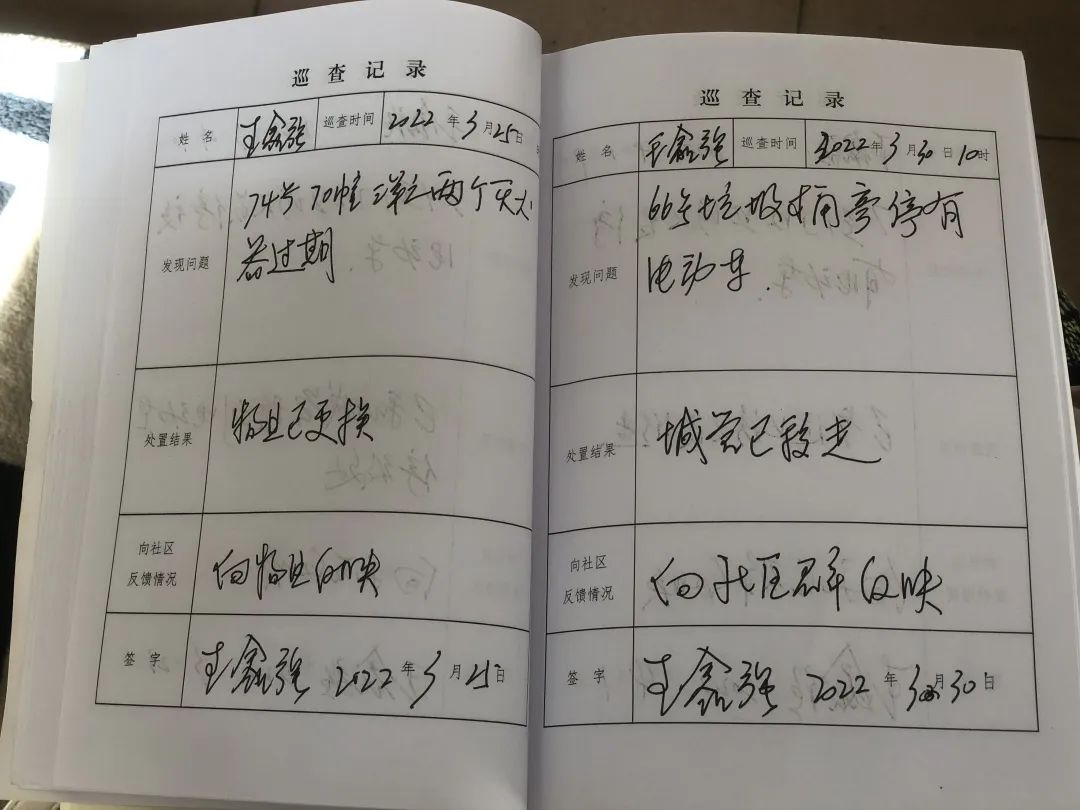 巡查记录
姓名 王鑫强 巡查时间 2022年3月25日
发现问题
74号70幢洋房两个灭火
器过期
处置结果
物业已更换
向社区
反馈情况
向物业反映
签字 王鑫强 2022年3月25日
巡查记录
姓名 王鑫强 巡查时间 2022年3月30日10时
发现问题
66号垃圾桶旁停有
电动车.
处置结果
城管已移走
向社区
反馈情况
向社区群反映
签字 王鑫强 2022年3月30日